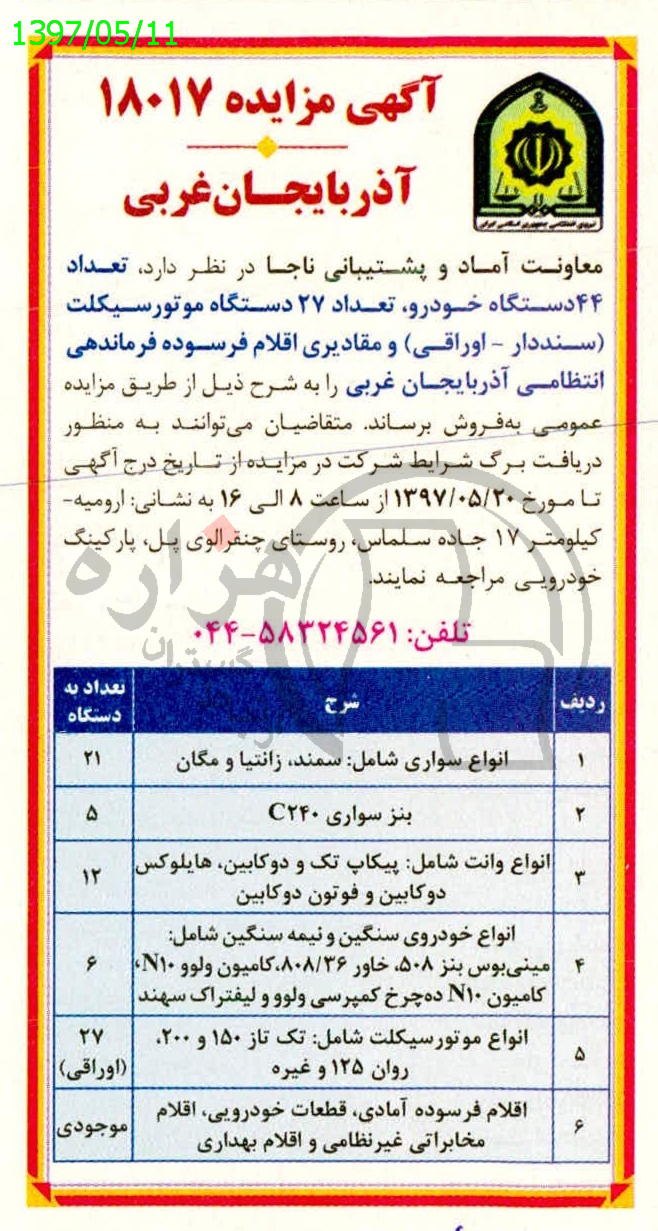 1397/05/11
آگهی مزایده ۱۸۰۱۷
آذربایجان‌غربی
نیروی انتظامی جمهوری اسلامی ایران
معاونت آماد و پشتیبانی ناجا در نظر دارد، تعداد
۴۴دستگاه خودرو، تعداد ۲۷ دستگاه موتورسیکلت
(سنددار - اوراقی) و مقادیری اقلام فرسوده فرماندهی
انتظامی آذربایجان غربی را به شرح ذیل از طریق مزایده
عمومی به‌فروش برساند. متقاضیان می‌توانند به منظور
دریافت برگ شرایط شرکت در مزایده از تاریخ درج آگهی
تا مورخ ۱۳۹۷/۰۵/۲۰ از ساعت ۸ الی ۱۶ به نشانی: ارومیه-
کیلومتر ۱۷ جاده سلماس، روستای چنقرالوی پل، پارکینگ
خودرویی مراجعه نمایند.
هزاره
تلفن: ۵۸۳۲۴۵۶۱-۰۴۴
ردیف شرح تعداد به دستگاه
۱ انواع سواری شامل: سمند، زانتیا و مگان ۲۱
۲ بنز سواری C۲۴۰ ۵
۳ انواع وانت شامل: پیکاپ تک و دوکابین، هایلوکس ۱۲
دوکابین و فوتون دوکابین
انواع خودروی سنگین و نیمه سنگین شامل:
۴ مینی‌بوس بنز ۵۰۸، خاور ۸۰۸/۳۶،کامیون ولوو N۱۰، ۶
کامیون N۱۰ ده‌چرخ کمپرسی ولوو و لیفتراک سهند
۵ انواع موتورسیکلت شامل: تک تاز ۱۵۰ و ۲۰۰، ۲۷
روان ۱۲۵ و غیره (اوراقی)
۶ اقلام فرسوده آمادی، قطعات خودرویی، اقلام موجودی
مخابراتی غیرنظامی و اقلام بهداری